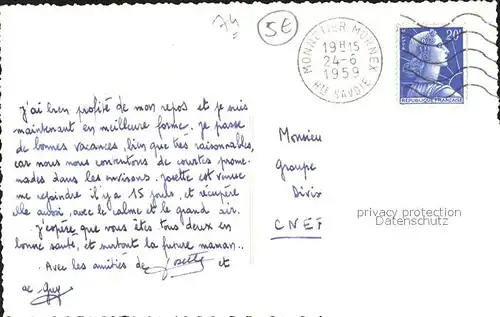 74
5€
MONNETIER-MORNEX
19H15
24-6
1959
HTE SAVOIE
20F
REPUBLIQUE FRANÇAISE
J'ai bien profité de mon repos et je suis
maintenant en meilleure forme. Je passe
de bonnes vacances, bien que très raisonnables,
car nous nous contentons de courtes prome-
nades dans les environs. Josette est venue
me rejoindre il y a 15 jours, et récupère
elle aussi, avec le calme et le grand air.
J'espère que vous êtes tous deux en
bonne santé, et surtout la future maman..
. Avec les amitiés de Josette et
de Guy
Monsieu
Groupe
Divis
CNEF
privacy protection
Datenschutz